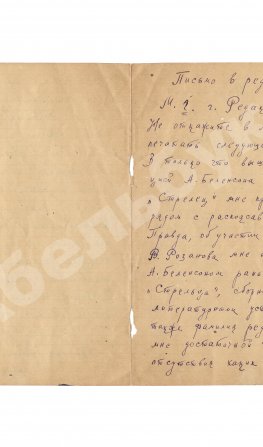 Письмо в ред
М. г. г. Редак
Не откажите в л
печатать следующ
В только что выш
цией А. Беленсона
"Стрелец" мне пр
рядом с распоясав
Правда, об участии
В. Розанова мне
А. Беленсоном ран
"Стрельца", сборн
литературном уст
тогда фамилия ред
мне достаточной
отсутствия каких